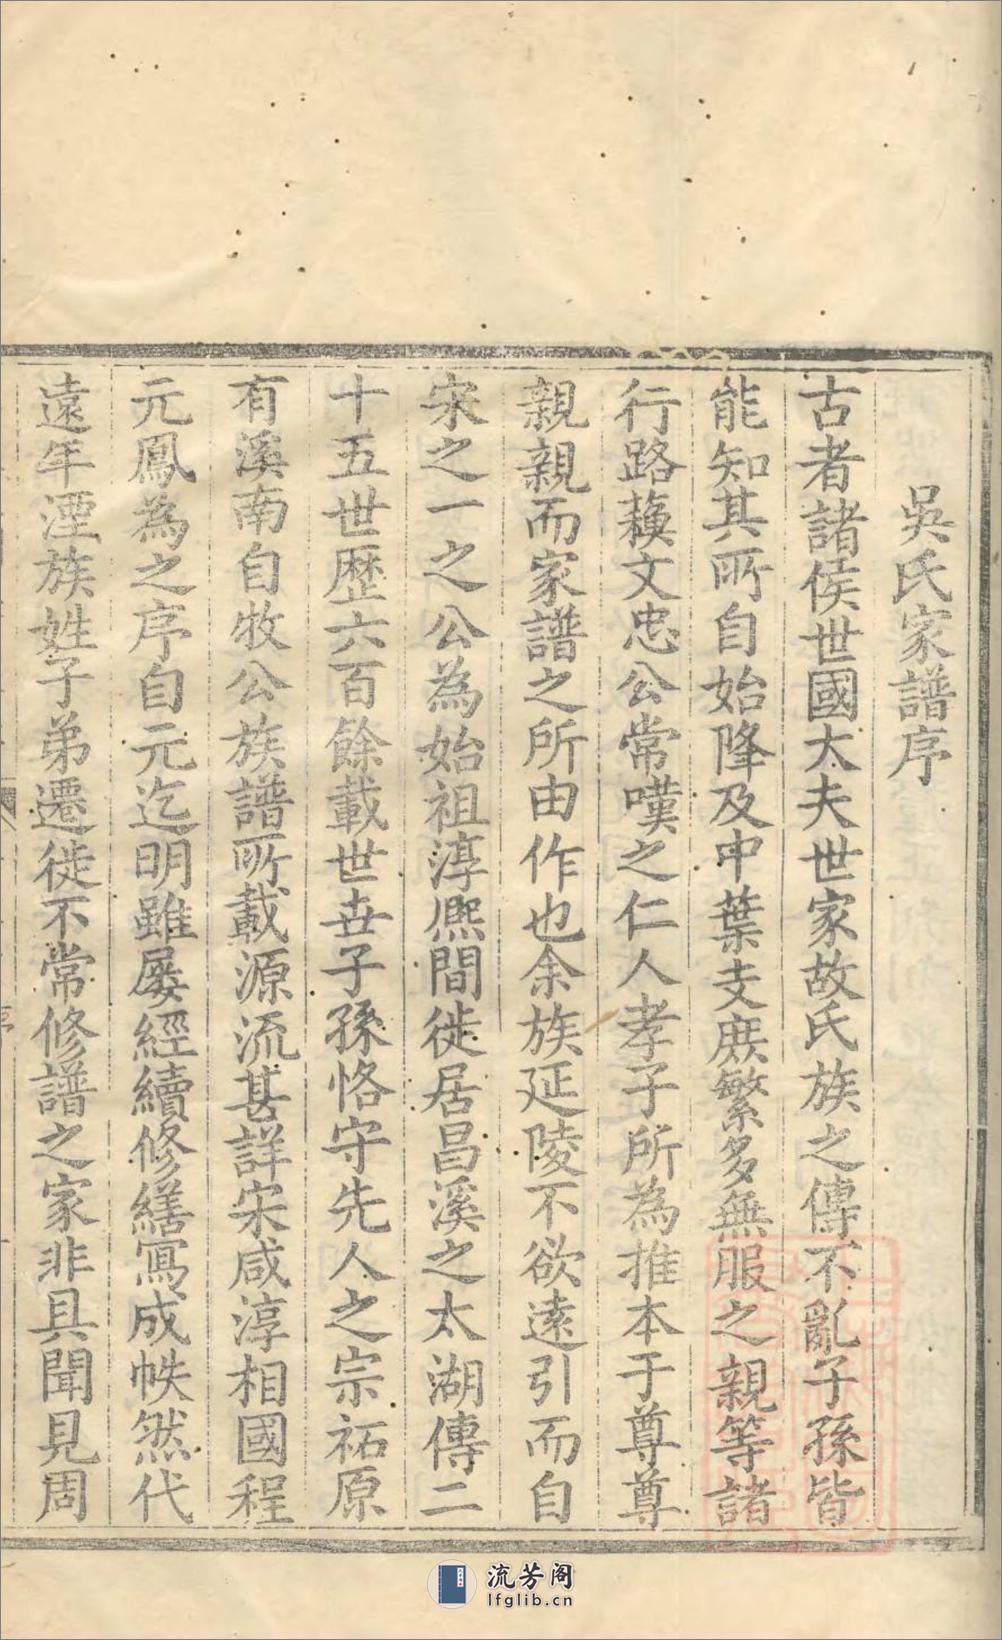 吳氏家譜序
古者諸侯世國大夫世家故氏族之傳不亂子孫皆
能知其所自始降及中葉支庶繁多無服之親等諸
行路蘓文忠公常嘆之仁人孝子所為推本于尊尊
親親而家譜之所由作也余族延陵不欲遠引而自
宋之一之公為始祖淳熈間徙居昌溪之太湖傳二
十五世歷六百餘載世世子孫恪守先人之宗祏原
有溪南自牧公族譜所載源流甚詳宋咸淳相國程
元鳳為之序自元迄明雖屡經續修繕寫成帙然代
遠年湮族姓子弟遷徙不常修譜之家非具聞見周
流芳阁
lfglib.cn